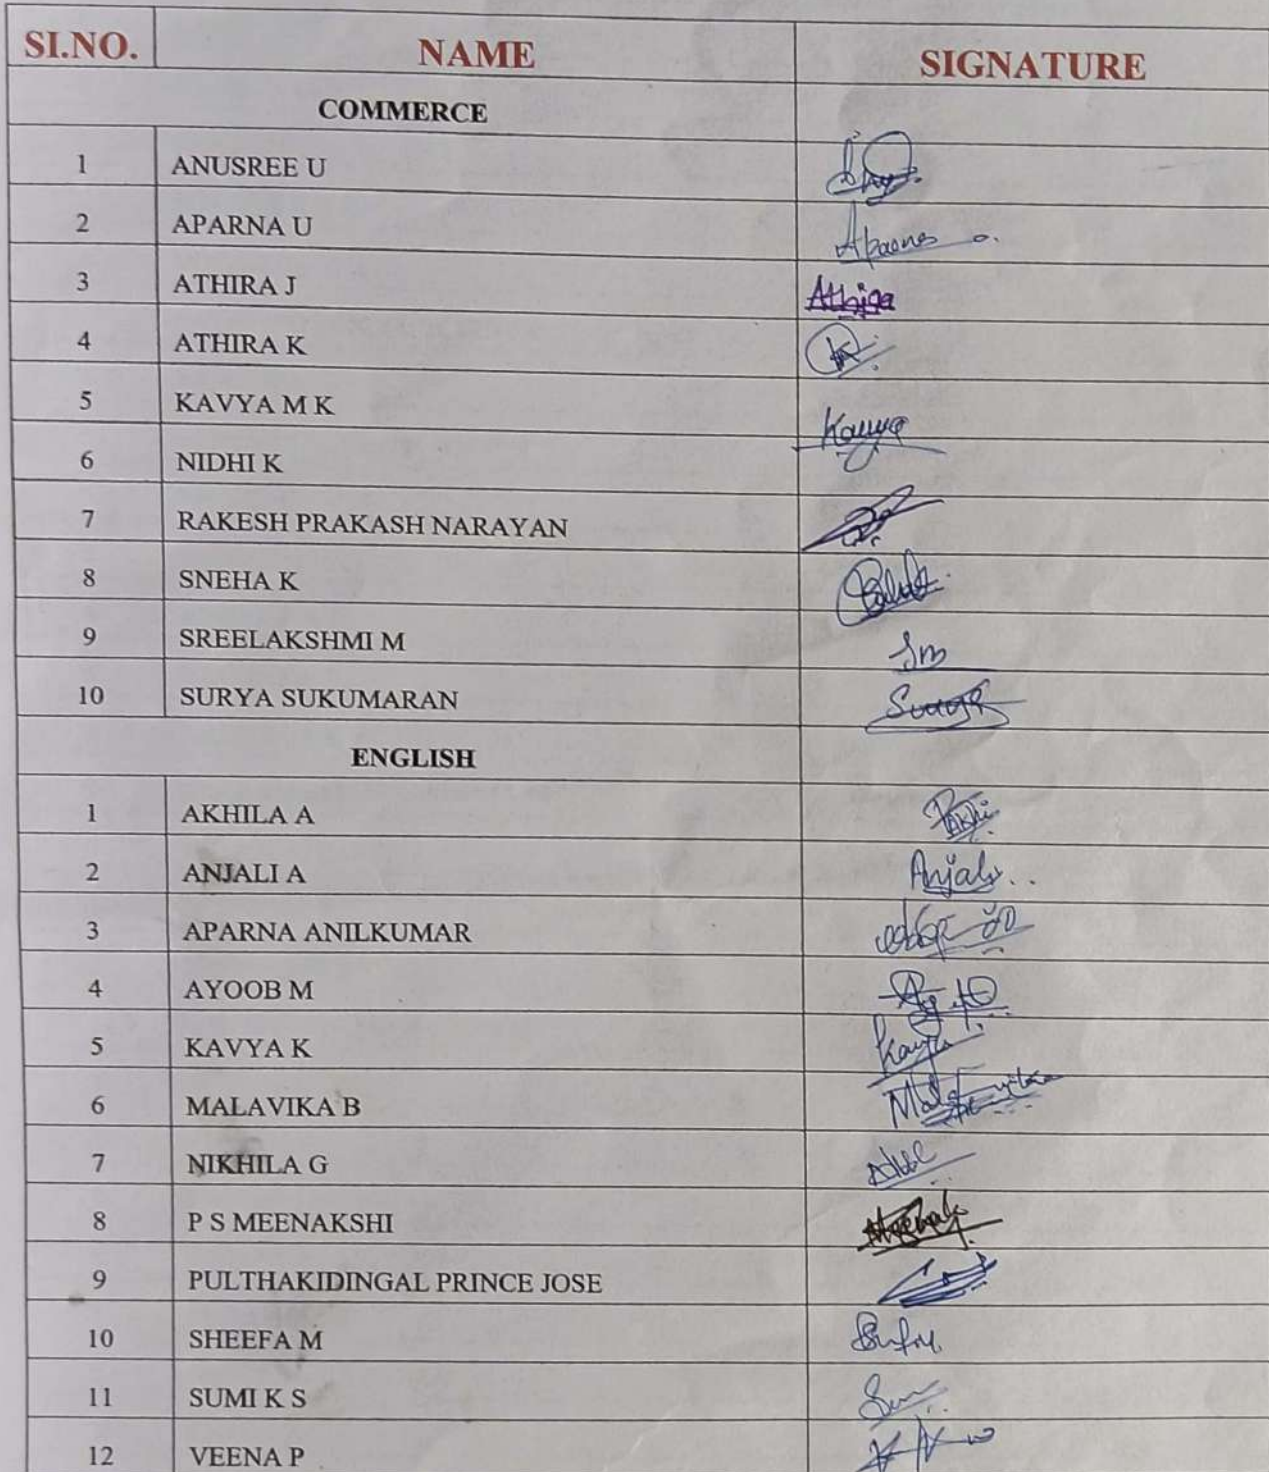 SI.NO. NAME SIGNATURE
COMMERCE
1 ANUSREE U
2 APARNA U
3 ATHIRA J Athira
4 ATHIRA K
5 KAVYA M K Kavya
6 NIDHI K
7 RAKESH PRAKASH NARAYAN
8 SNEHA K
9 SREELAKSHMI M Sm
10 SURYA SUKUMARAN Surya
ENGLISH
1 AKHILA A
2 ANJALI A Anjali
3 APARNA ANILKUMAR
4 AYOOB M
5 KAVYA K Kavya
6 MALAVIKA B Malavika
7 NIKHILA G
8 P S MEENAKSHI
9 PULTHAKIDINGAL PRINCE JOSE
10 SHEEFA M
11 SUMI K S
12 VEENA P